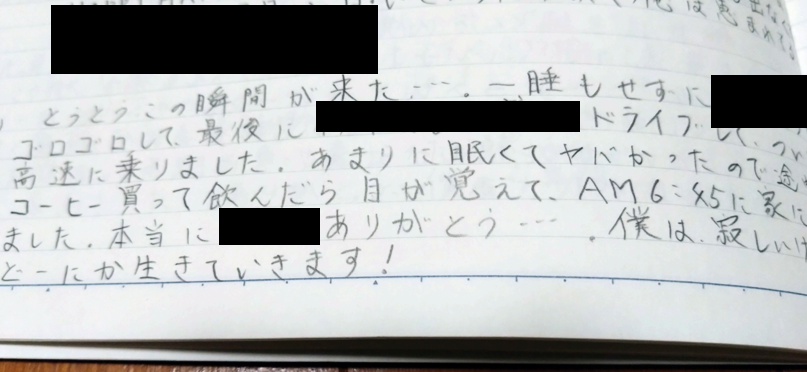 とうとうこの瞬間が来た…。一睡もせずに
ゴロゴロして、最後に ドライブして、つい
高速に乗りました。あまりに眠くてヤバかったので途
コーヒー買って飲んだら目が覚えて、AM6:45に家に
ました。本当に ありがとう…。僕は、寂しいけ
どーにか生きていきます!